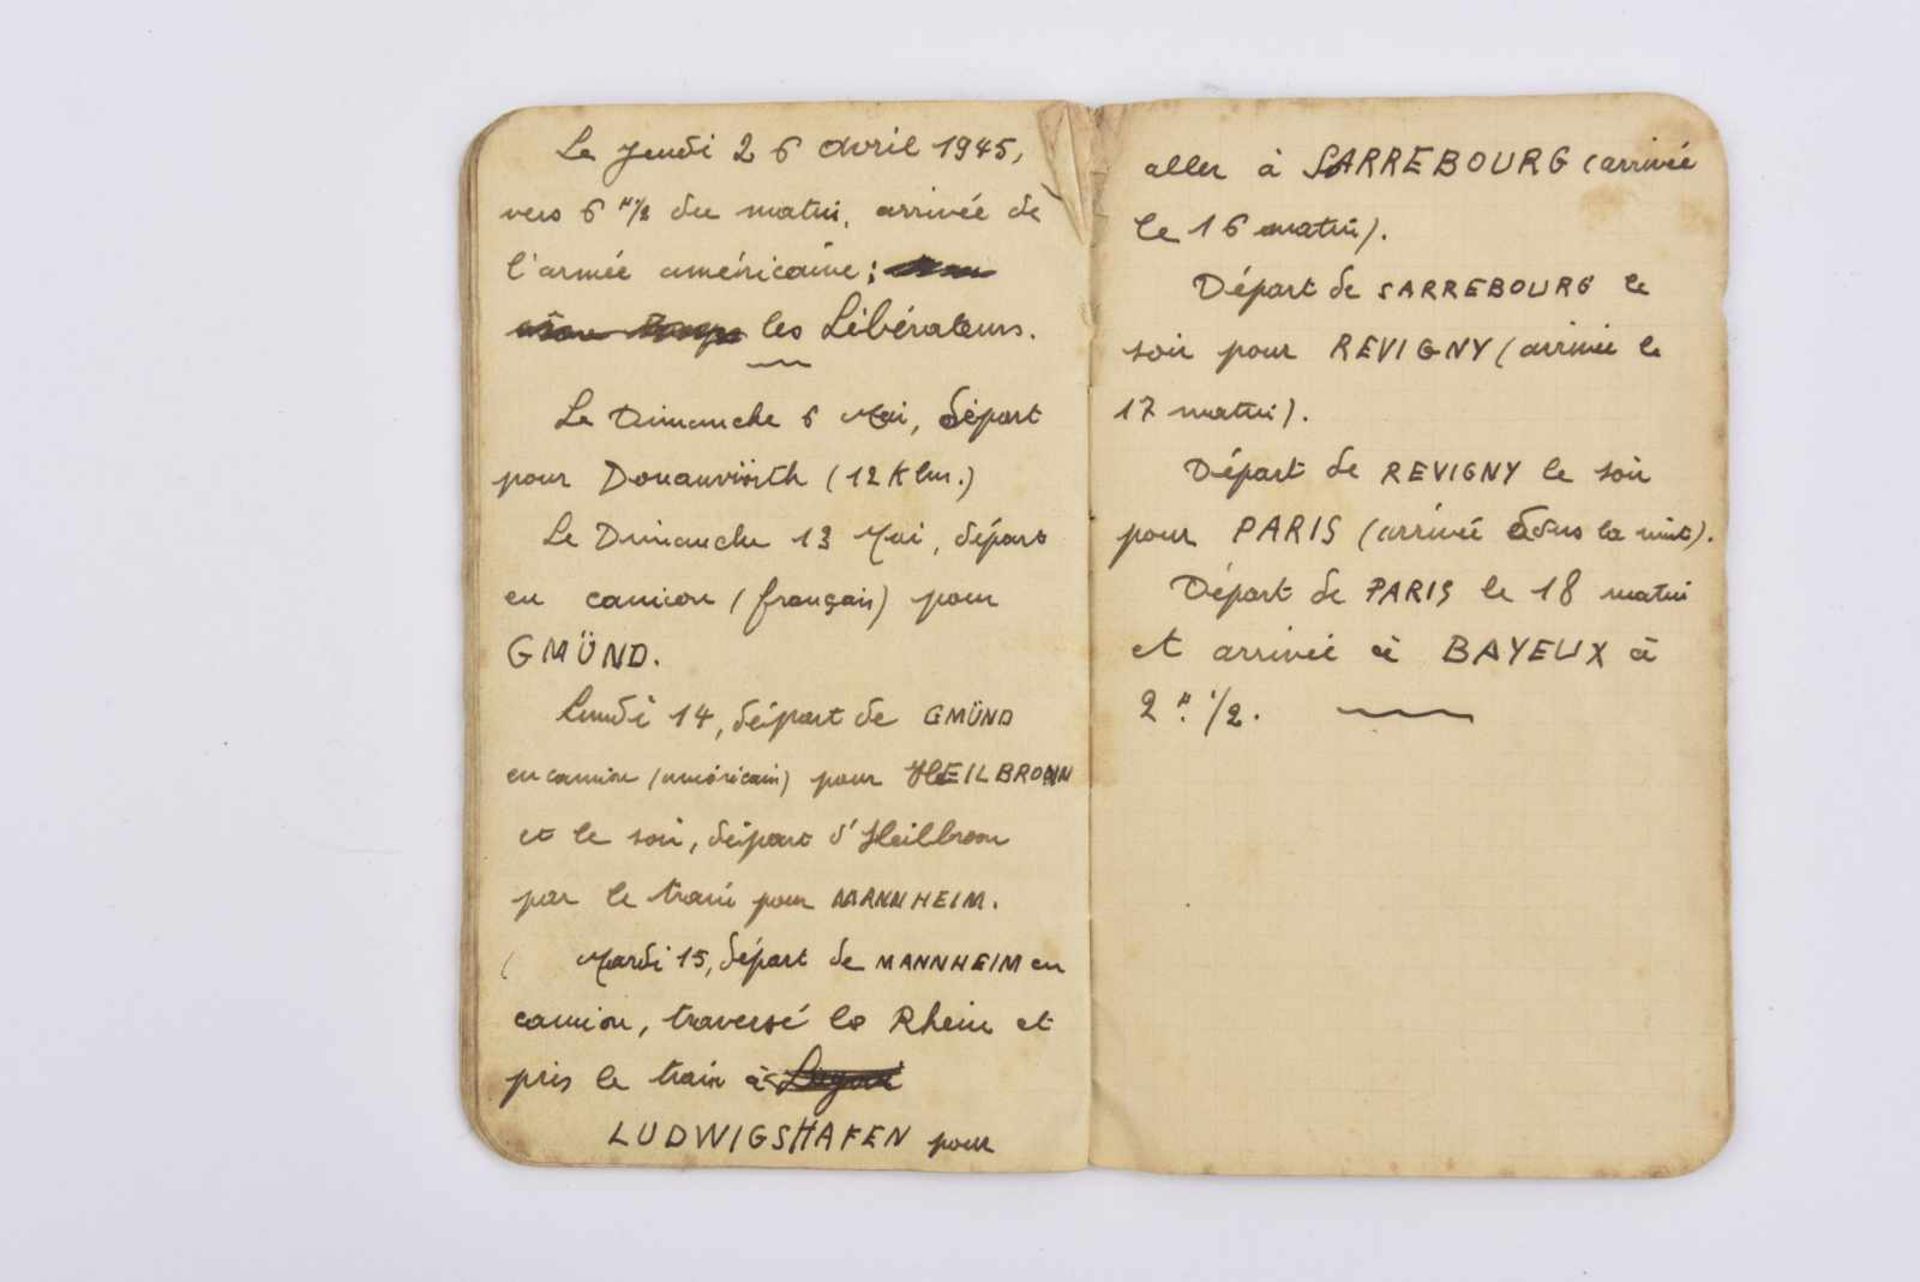 Le Jeudi 26 Avril 1945,
vers 6 H 1/2 du matin, arrivée de
l'armée américaine;
les Libérateurs.
Le Dimanche 6 Mai, départ
pour Donauwörth (12 Klm.)
Le Dimanche 13 Mai, départ
en camion (français) pour
GMÜND.
Lundi 14, départ de GMÜND
en camion (américain) pour HEILBRONN
et le soir, départ d'Heilbronn
par le train pour MANNHEIM.
( Mardi 15, départ de MANNHEIM en
camion, traversé le Rhein et
pris le train à
LUDWIGSHAFEN pour
aller à SARREBOURG (arrivée
le 16 matin).
Départ de SARREBOURG le
soir pour REVIGNY (arrivée le
17 matin).
Départ de REVIGNY le soir
pour PARIS (arrivée dans la nuit).
Départ de PARIS le 18 matin
et arrivée à BAYEUX à
2 H. 1/2.